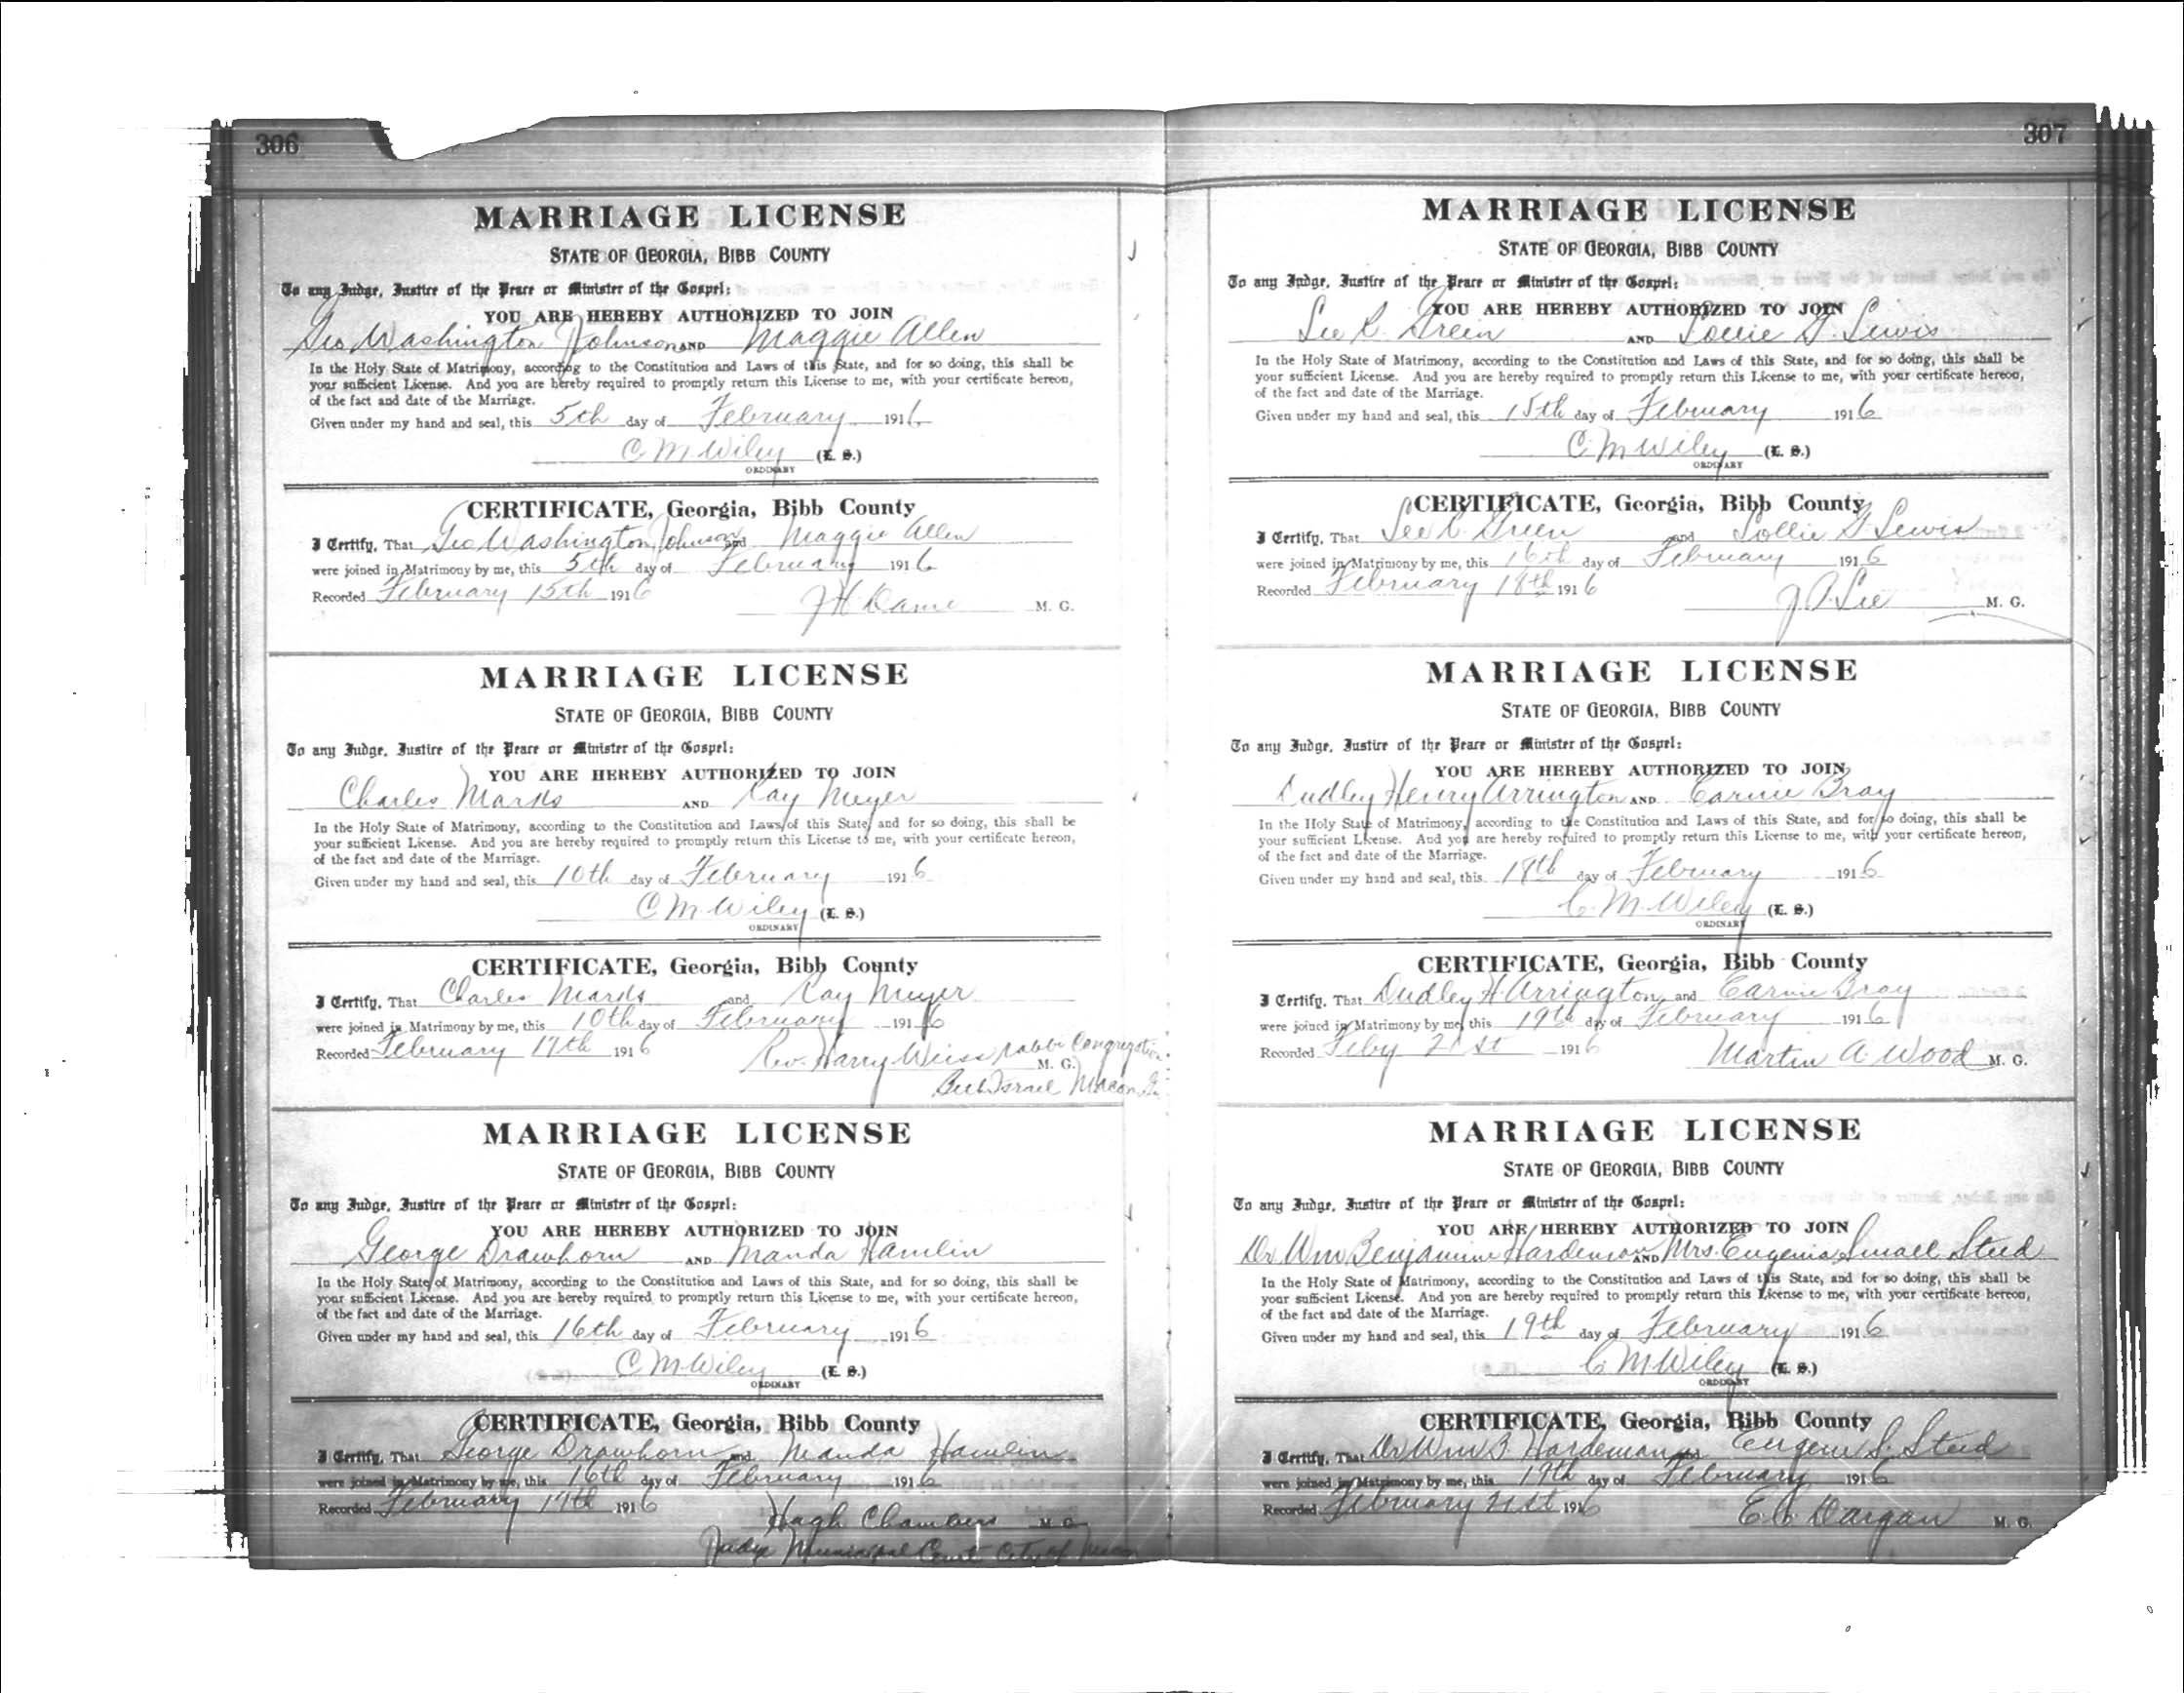 306
MARRIAGE LICENSE
STATE OF GEORGIA, BIBB COUNTY
To any Judge, Justice of the Peace or Minister of the Gospel:
YOU ARE HEREBY AUTHORIZED TO JOIN
Geo Washington Johnson AND Maggie Allen
In the Holy State of Matrimony, according to the Constitution and Laws of this State, and for so doing, this shall be
your sufficient License. And you are hereby required to promptly return this License to me, with your certificate hereon,
of the fact and date of the Marriage.
Given under my hand and seal, this 5th day of February 1916
C M Wiley (L. S.)
ORDINARY
CERTIFICATE, Georgia, Bibb County
I Certify, That Geo Washington Johnson and Maggie Allen
were joined in Matrimony by me, this 5th day of February 1916
Recorded February 15th 1916
J H Dame M. G.
MARRIAGE LICENSE
STATE OF GEORGIA, BIBB COUNTY
To any Judge, Justice of the Peace or Minister of the Gospel:
YOU ARE HEREBY AUTHORIZED TO JOIN
Charles Marks AND Kay Meyer
In the Holy State of Matrimony, according to the Constitution and Laws of this State, and for so doing, this shall be
your sufficient License. And you are hereby required to promptly return this License to me, with your certificate hereon,
of the fact and date of the Marriage.
Given under my hand and seal, this 10th day of February 1916
C M Wiley (L. S.)
ORDINARY
CERTIFICATE, Georgia, Bibb County
I Certify, That Charles Marks and Kay Meyer
were joined in Matrimony by me, this 10th day of February 1916
Recorded February 17th 1916
Rev. Harry Weiss rabbi Congregation
M. G.
Beth Israel Macon Ga
MARRIAGE LICENSE
STATE OF GEORGIA, BIBB COUNTY
To any Judge, Justice of the Peace or Minister of the Gospel:
YOU ARE HEREBY AUTHORIZED TO JOIN
George Drawhorn AND Manda Hamlin
In the Holy State of Matrimony, according to the Constitution and Laws of this State, and for so doing, this shall be
your sufficient License. And you are hereby required to promptly return this License to me, with your certificate hereon,
of the fact and date of the Marriage.
Given under my hand and seal, this 16th day of February 1916
C M Wiley (L. S.)
ORDINARY
CERTIFICATE, Georgia, Bibb County
I Certify, That George Drawhorn and Manda Hamlin
were joined in Matrimony by me, this 16th day of February 1916
Recorded February 17th 1916
Hugh Chambers M. G.
Judge Municipal Court City of Macon
307
MARRIAGE LICENSE
STATE OF GEORGIA, BIBB COUNTY
To any Judge, Justice of the Peace or Minister of the Gospel:
YOU ARE HEREBY AUTHORIZED TO JOIN
Lee C. Green AND Lollie G. Lewis
In the Holy State of Matrimony, according to the Constitution and Laws of this State, and for so doing, this shall be
your sufficient License. And you are hereby required to promptly return this License to me, with your certificate hereon,
of the fact and date of the Marriage.
Given under my hand and seal, this 15th day of February 1916
C M Wiley (L. S.)
ORDINARY
CERTIFICATE, Georgia, Bibb County
I Certify, That Lee C. Green and Lollie G Lewis
were joined in Matrimony by me, this 16th day of February 1916
Recorded February 18th 1916
J. A. Lee M. G.
MARRIAGE LICENSE
STATE OF GEORGIA, BIBB COUNTY
To any Judge, Justice of the Peace or Minister of the Gospel:
YOU ARE HEREBY AUTHORIZED TO JOIN
Dudley Henry Arrington AND Carnie Bray
In the Holy State of Matrimony, according to the Constitution and Laws of this State, and for so doing, this shall be
your sufficient License. And you are hereby required to promptly return this License to me, with your certificate hereon,
of the fact and date of the Marriage.
Given under my hand and seal, this 18th day of February 1916
C. M. Wiley (L. S.)
ORDINARY
CERTIFICATE, Georgia, Bibb County
I Certify, That Dudley H. Arrington and Carnie Bray
were joined in Matrimony by me, this 19th day of February 1916
Recorded Feby 21st 1916
Martin A. Wood M. G.
MARRIAGE LICENSE
STATE OF GEORGIA, BIBB COUNTY
To any Judge, Justice of the Peace or Minister of the Gospel:
YOU ARE HEREBY AUTHORIZED TO JOIN
Dr Wm Benjamine Hardeman AND Mrs. Eugenia Small Steed
In the Holy State of Matrimony, according to the Constitution and Laws of this State, and for so doing, this shall be
your sufficient License. And you are hereby required to promptly return this License to me, with your certificate hereon,
of the fact and date of the Marriage.
Given under my hand and seal, this 19th day of February 1916
C. M Wiley (L. S.)
ORDINARY
CERTIFICATE, Georgia, Bibb County
I Certify, That Dr Wm B. Hardeman and Eugenia S. Steed
were joined in Matrimony by me, this 19th day of February 1916
Recorded February 21st 1916
E. C. Dargan M. G.